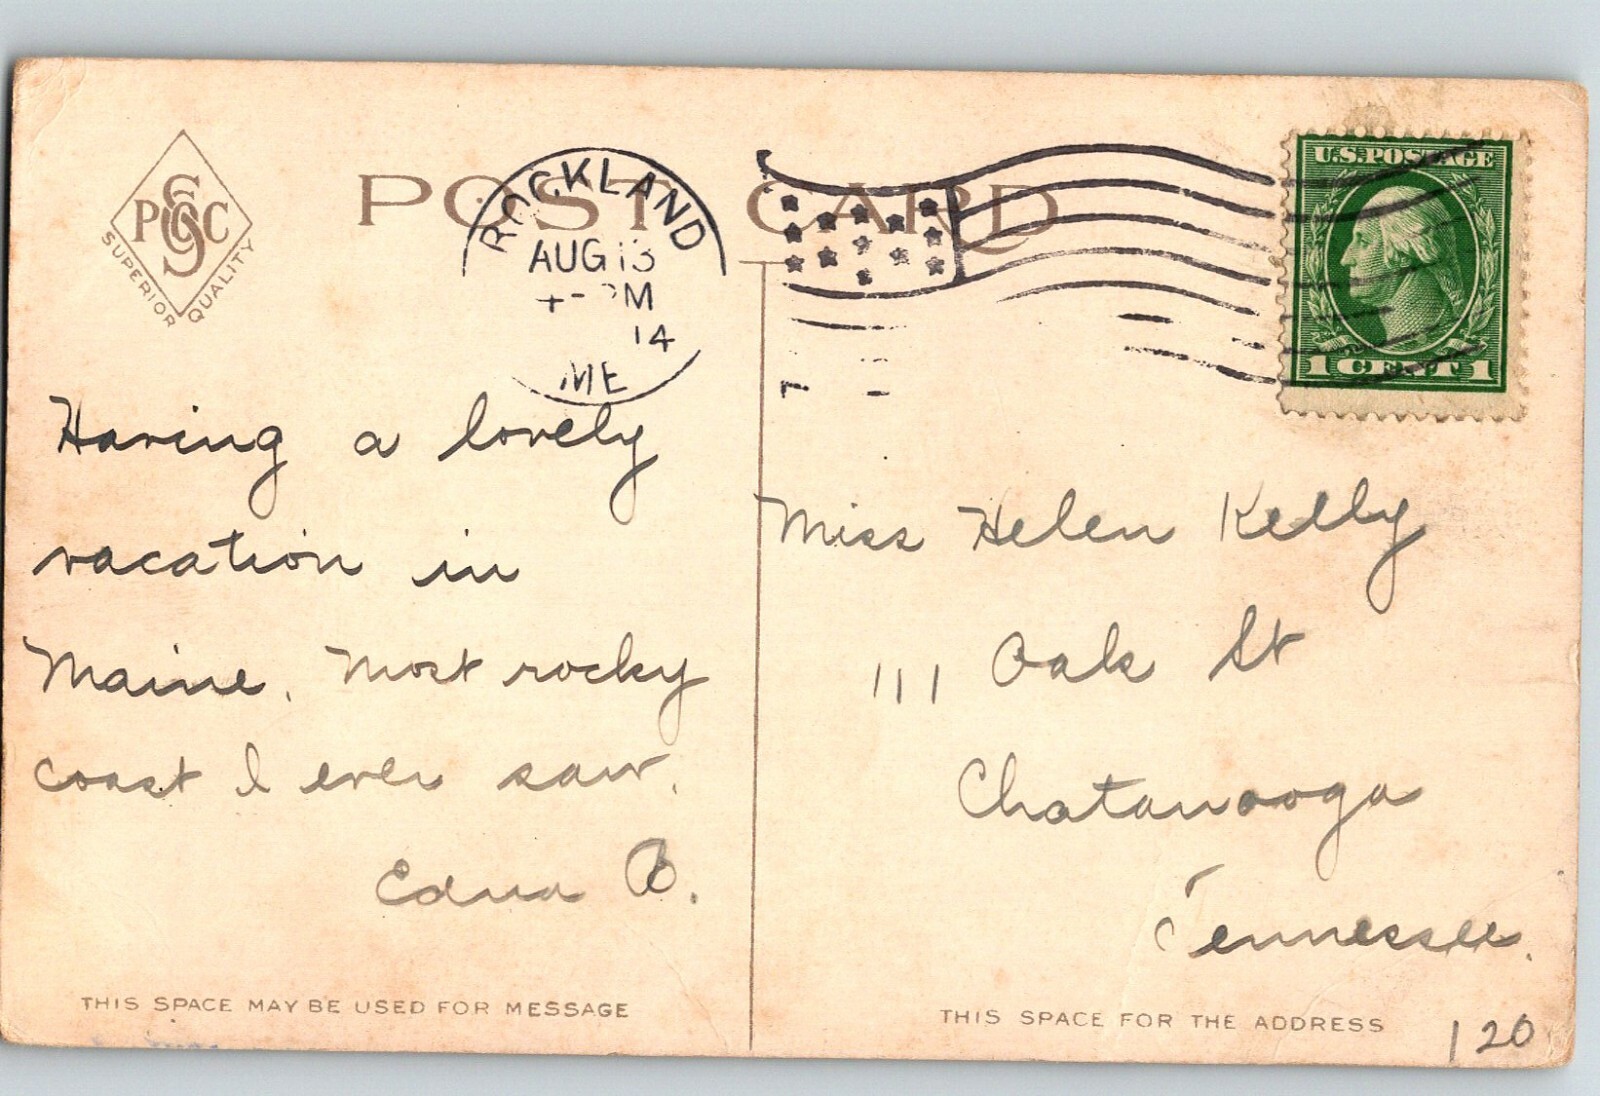 POST CARD
PSGC
SUPERIOR QUALITY
ROCKLAND
AUG 13
PM
14
ME
U.S. POSTAGE
1 CENT 1
Having a lovely
vacation in
Maine. Most rocky
coast I ever saw.
Edna B.
Miss Helen Kelly
111 Oak St
Chatanooga
Tennessee.
THIS SPACE MAY BE USED FOR MESSAGE
THIS SPACE FOR THE ADDRESS
120